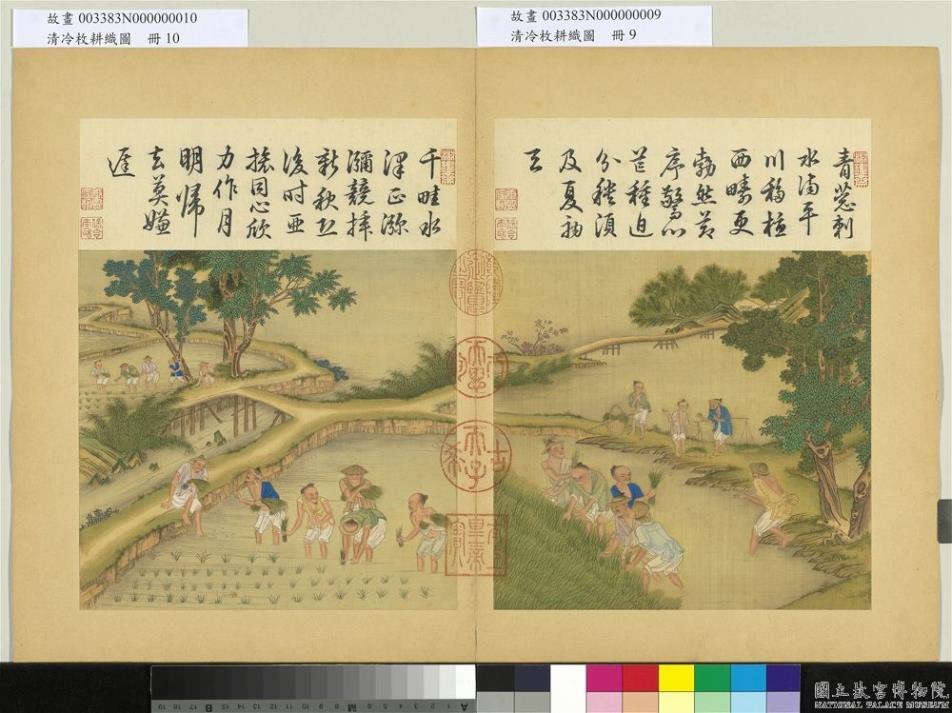 故畫 003383N000000010
清冷枚耕織圖 冊 10
故畫 003383N000000009
清冷枚耕織圖 冊 9
青葱刺
水滿平
川移植
西疇更
勃然節
序驚心
芒種迫
分秧須
及夏初
天
千畦水
澤正瀰
瀰競插
新秧恐
後時亞
旅同心欣
力作月
明歸
去莫嫌
遲
國立故宮博物院
NATIONAL PALACE MUSEUM